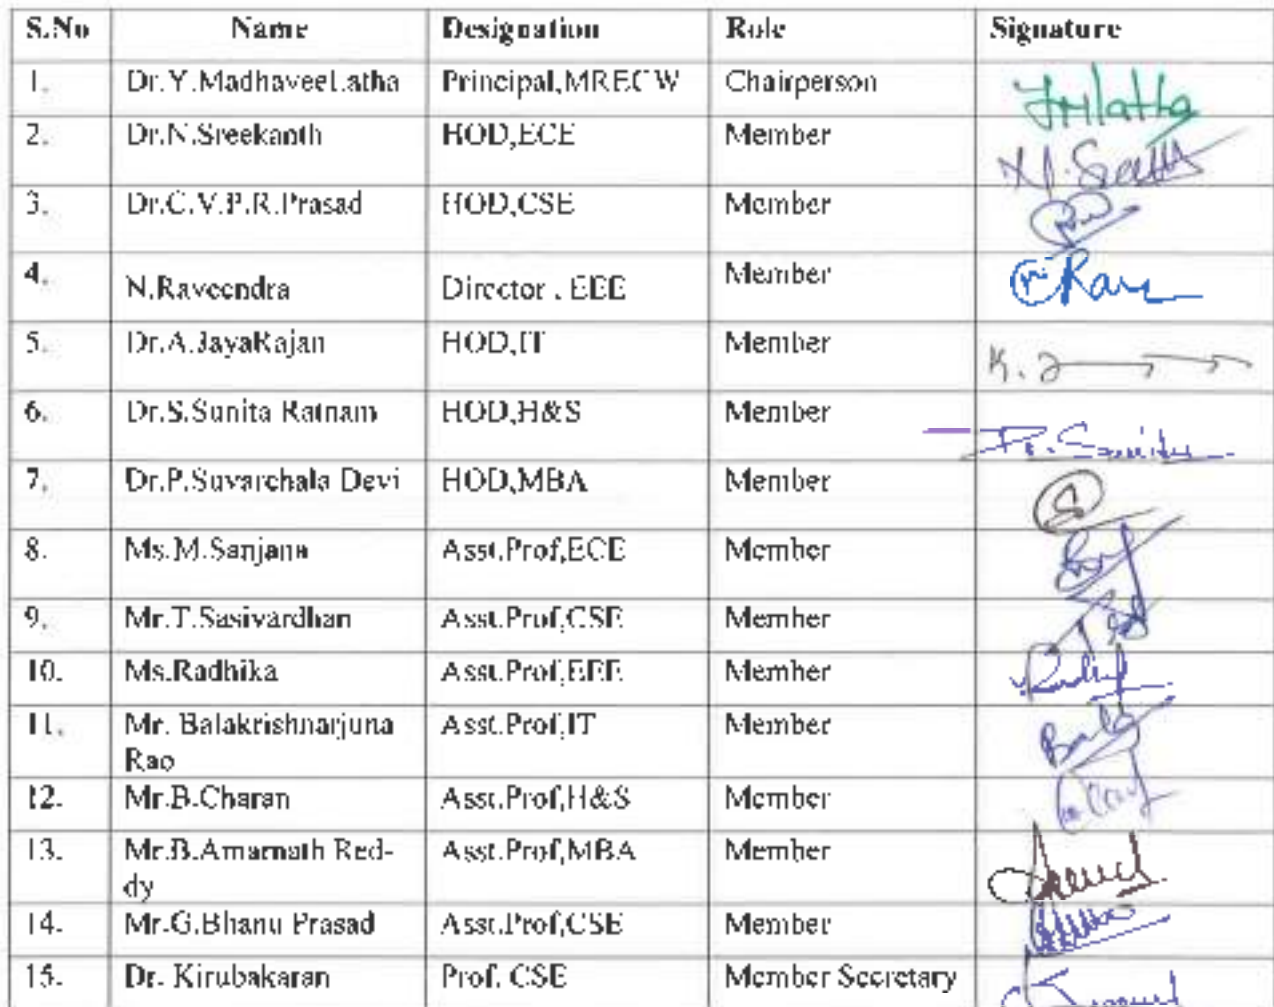 S.No Name Designation Role Signature
1. Dr.Y.MadhaveeLatha Principal,MRECW Chairperson
2. Dr.N.Sreekanth HOD,ECE Member
3. Dr.C.V.P.R.Prasad HOD,CSE Member
4. N.Raveendra Director , EEE Member
5. Dr.A.JayaRajan HOD,IT Member
6. Dr.S.Sunita Ratnam HOD,H&S Member
7. Dr.P.Suvarchala Devi HOD,MBA Member
8. Ms.M.Sanjana Asst.Prof,ECE Member
9. Mr.T.Sasivardhan Asst.Prof,CSE Member
10. Ms.Radhika Asst.Prof,EEE Member
11. Mr. Balakrishnarjuna Asst.Prof,IT Member
Rao
12. Mr.B.Charan Asst.Prof,H&S Member
13. Mr.B.Amarnath Red- Asst.Prof,MBA Member
dy
14. Mr.G.Bhanu Prasad Asst.Prof,CSE Member
15. Dr. Kirubakaran Prof. CSE Member Secretary